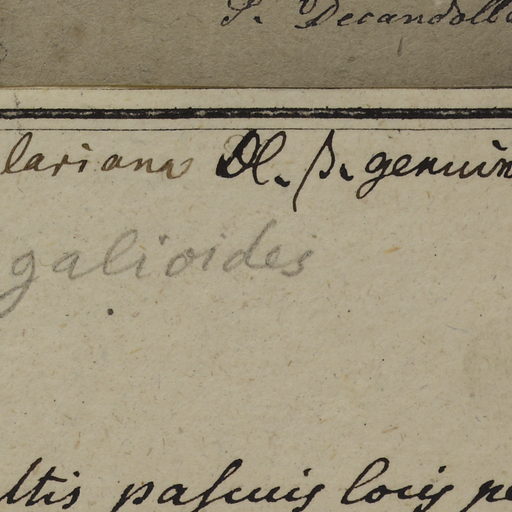 P. Decandolle
lariana Dl. β. genuin
galioides
ltis pascuis locis pe